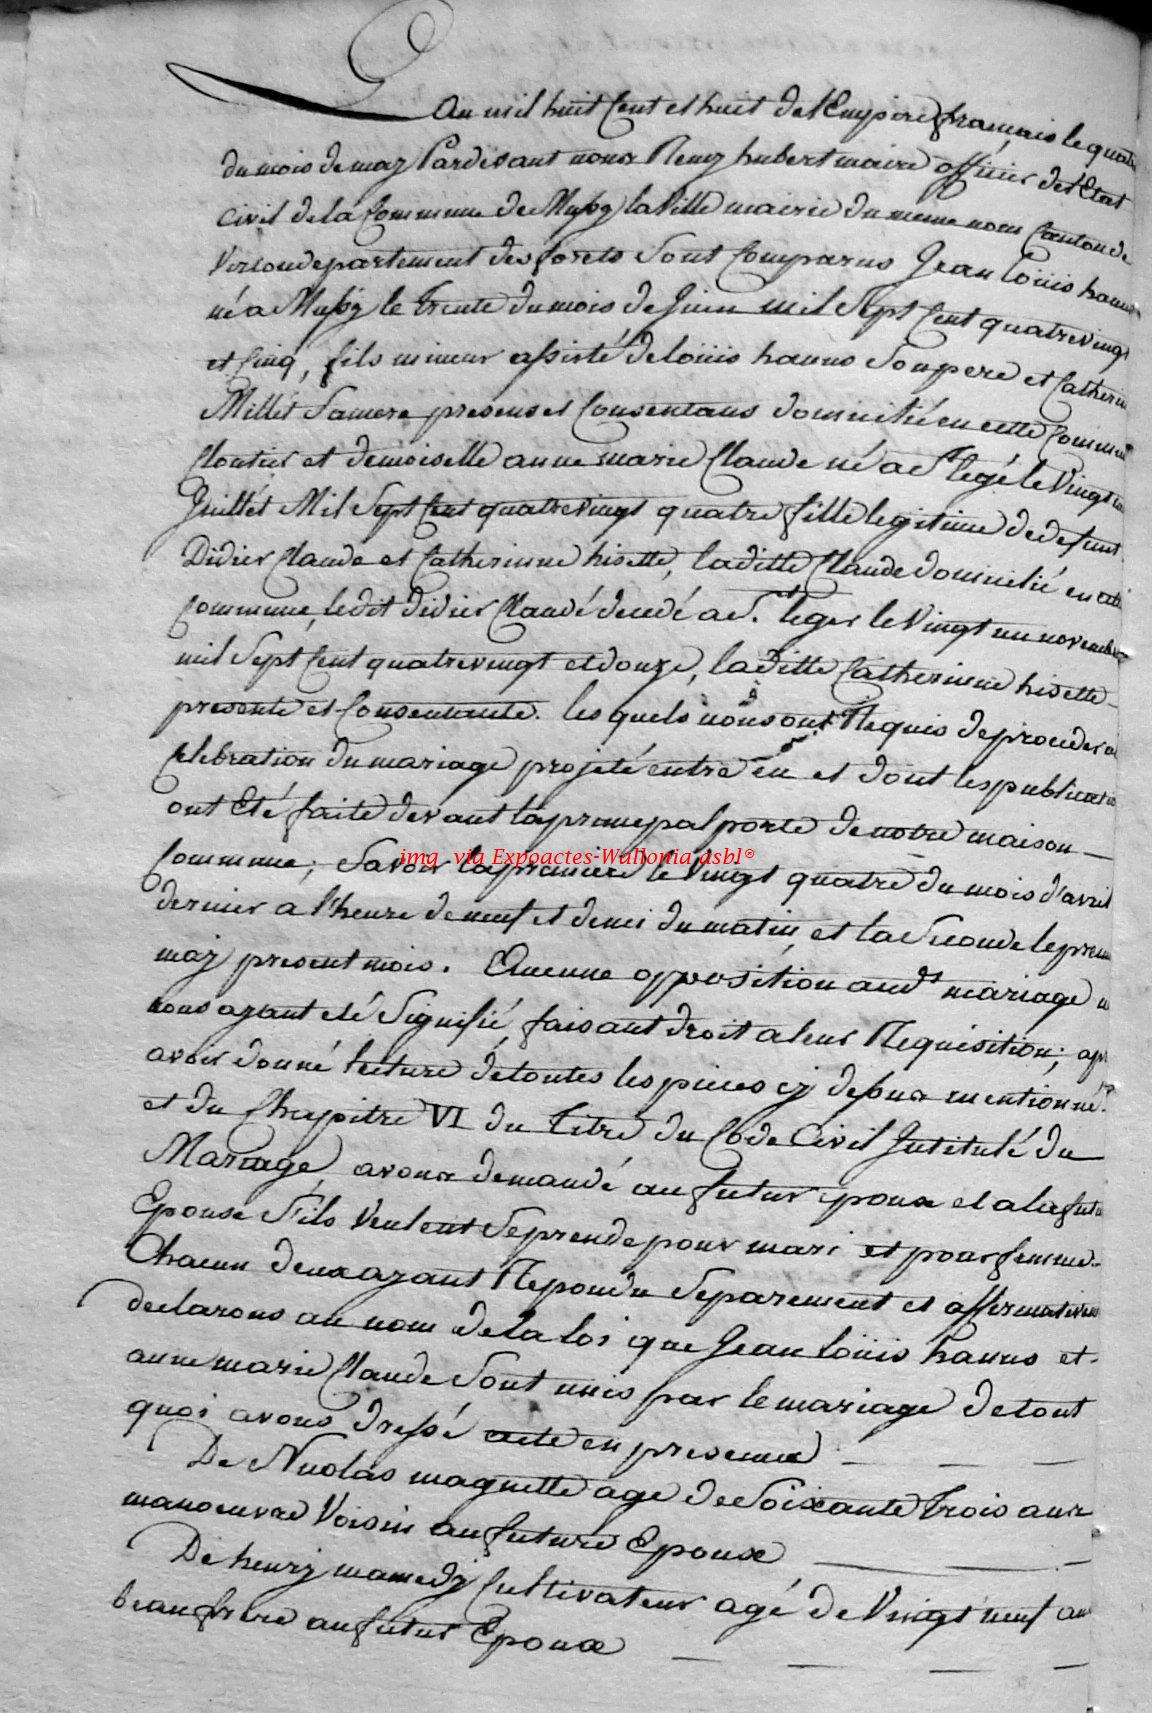 L'an mil huit Cent et huit de l'Empire français le quatre
du mois de may Pardevant nous Remy hubert maire officier de l'Etat
Civil de la Commune de Mussy la Ville mairie du meme nom Canton de
Virton departement des forets Sont Comparus Jean Loüis hanus
né a Mussy le trente du mois de Juin mil Sept Cent quatre vingt
et Cinq, fils mineur assisté de Loüis hanus Son pere et Catherine
Millét Sa mere presens et Consentans domicilié en cette Commune
Cloutier et demoiselle anne marie Claude né a St Legé le Vingt
Juillét Mil Sept Cent quatre vingt quatre fille legitime de defunt
Didier Claude et Catherinne hisette, laditte Claude domicilié en cette
Commune, ledit Didier Claude décedé a St. Leger le Vingt un novembre
mil Sept Cent quatre vingt et douze, laditte Catherinne hisette
presente et Consentante. les quels nous ont Requis de proceder a
Celebration du mariage projeté entre eu et dont les publication
ont Eté faite devant la principal porte de notre maison
Commune; Savoir la premiere le Vingt quatre du mois d'avril
img via Expoactes-Wallonia asbl®
dernier a l'heure de neuf et demi du matin et la Seconde le premier
may present mois. Aucune opposition audt mariage
nous ayant eté Signifié, faisant droit a leur Requisition; apr
avoir donné lecture de toutes les pieces cy dessus mentionné
et du Chapitre VI du Titre du Code Civil Intitulé du
Mariage avons demandé au futur epoux et a la futu
Epouse S'ils Veulent Se prende pour mari et pour femme
Chacun deux ayant Repondu Separement et affirmativem
declarons au nom de la loi que Jean Loüis hanus et
anne marie Claude Sont unis par le mariage de tout
quoi avons dressé acte en presence
De Nicolas maguette age de Soixante trois ans
manoeuvre Voisin au future Epoux
De henry mamedy Cultivateur agé de Vingt neuf an
beaufrere au futur Epoux